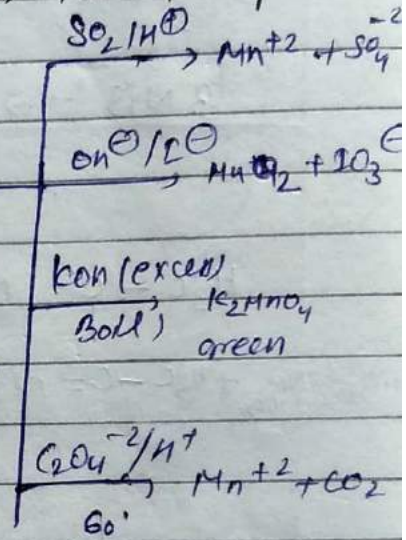 SO2/H⊕ → Mn+2 + SO4-2
OH⊖/I⊖ → MnO2 + IO3⊖
KOH (excess)
Boil, → K2MnO4
green
C2O4-2/H+ → Mn+2 + CO2
60°